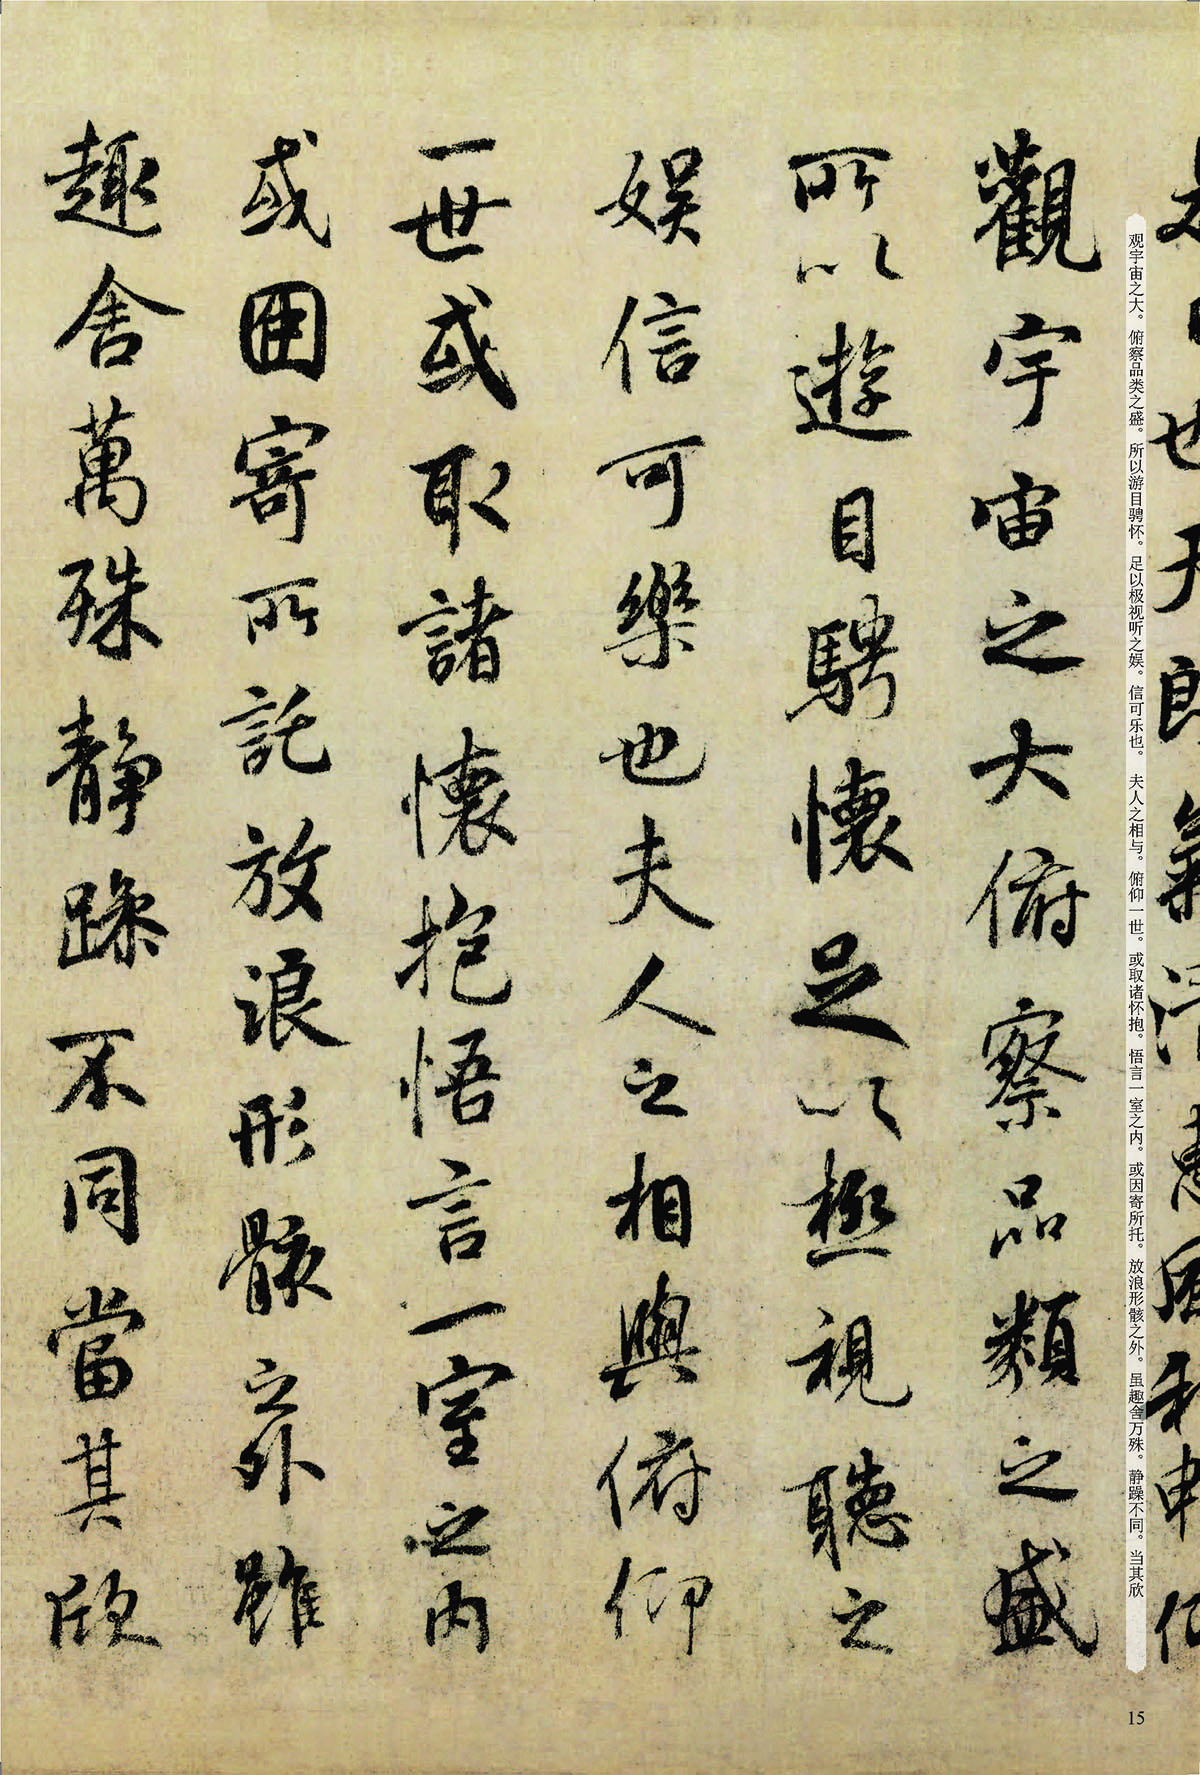 是日也天朗氣清惠風和暢仰
觀宇宙之大俯察品類之盛
所以遊目騁懷足以極視聽之
娛信可樂也夫人之相與俯仰
一世或取諸懷抱悟言一室之內
或因寄所託放浪形骸之外雖
趣舍萬殊靜躁不同當其欣
观宇宙之大。俯察品类之盛。所以游目骋怀。足以极视听之娱。信可乐也。 夫人之相与。俯仰一世。或取诸怀抱。悟言一室之内。或因寄所托。放浪形骸之外。虽趣舍万殊。静躁不同。当其欣
15